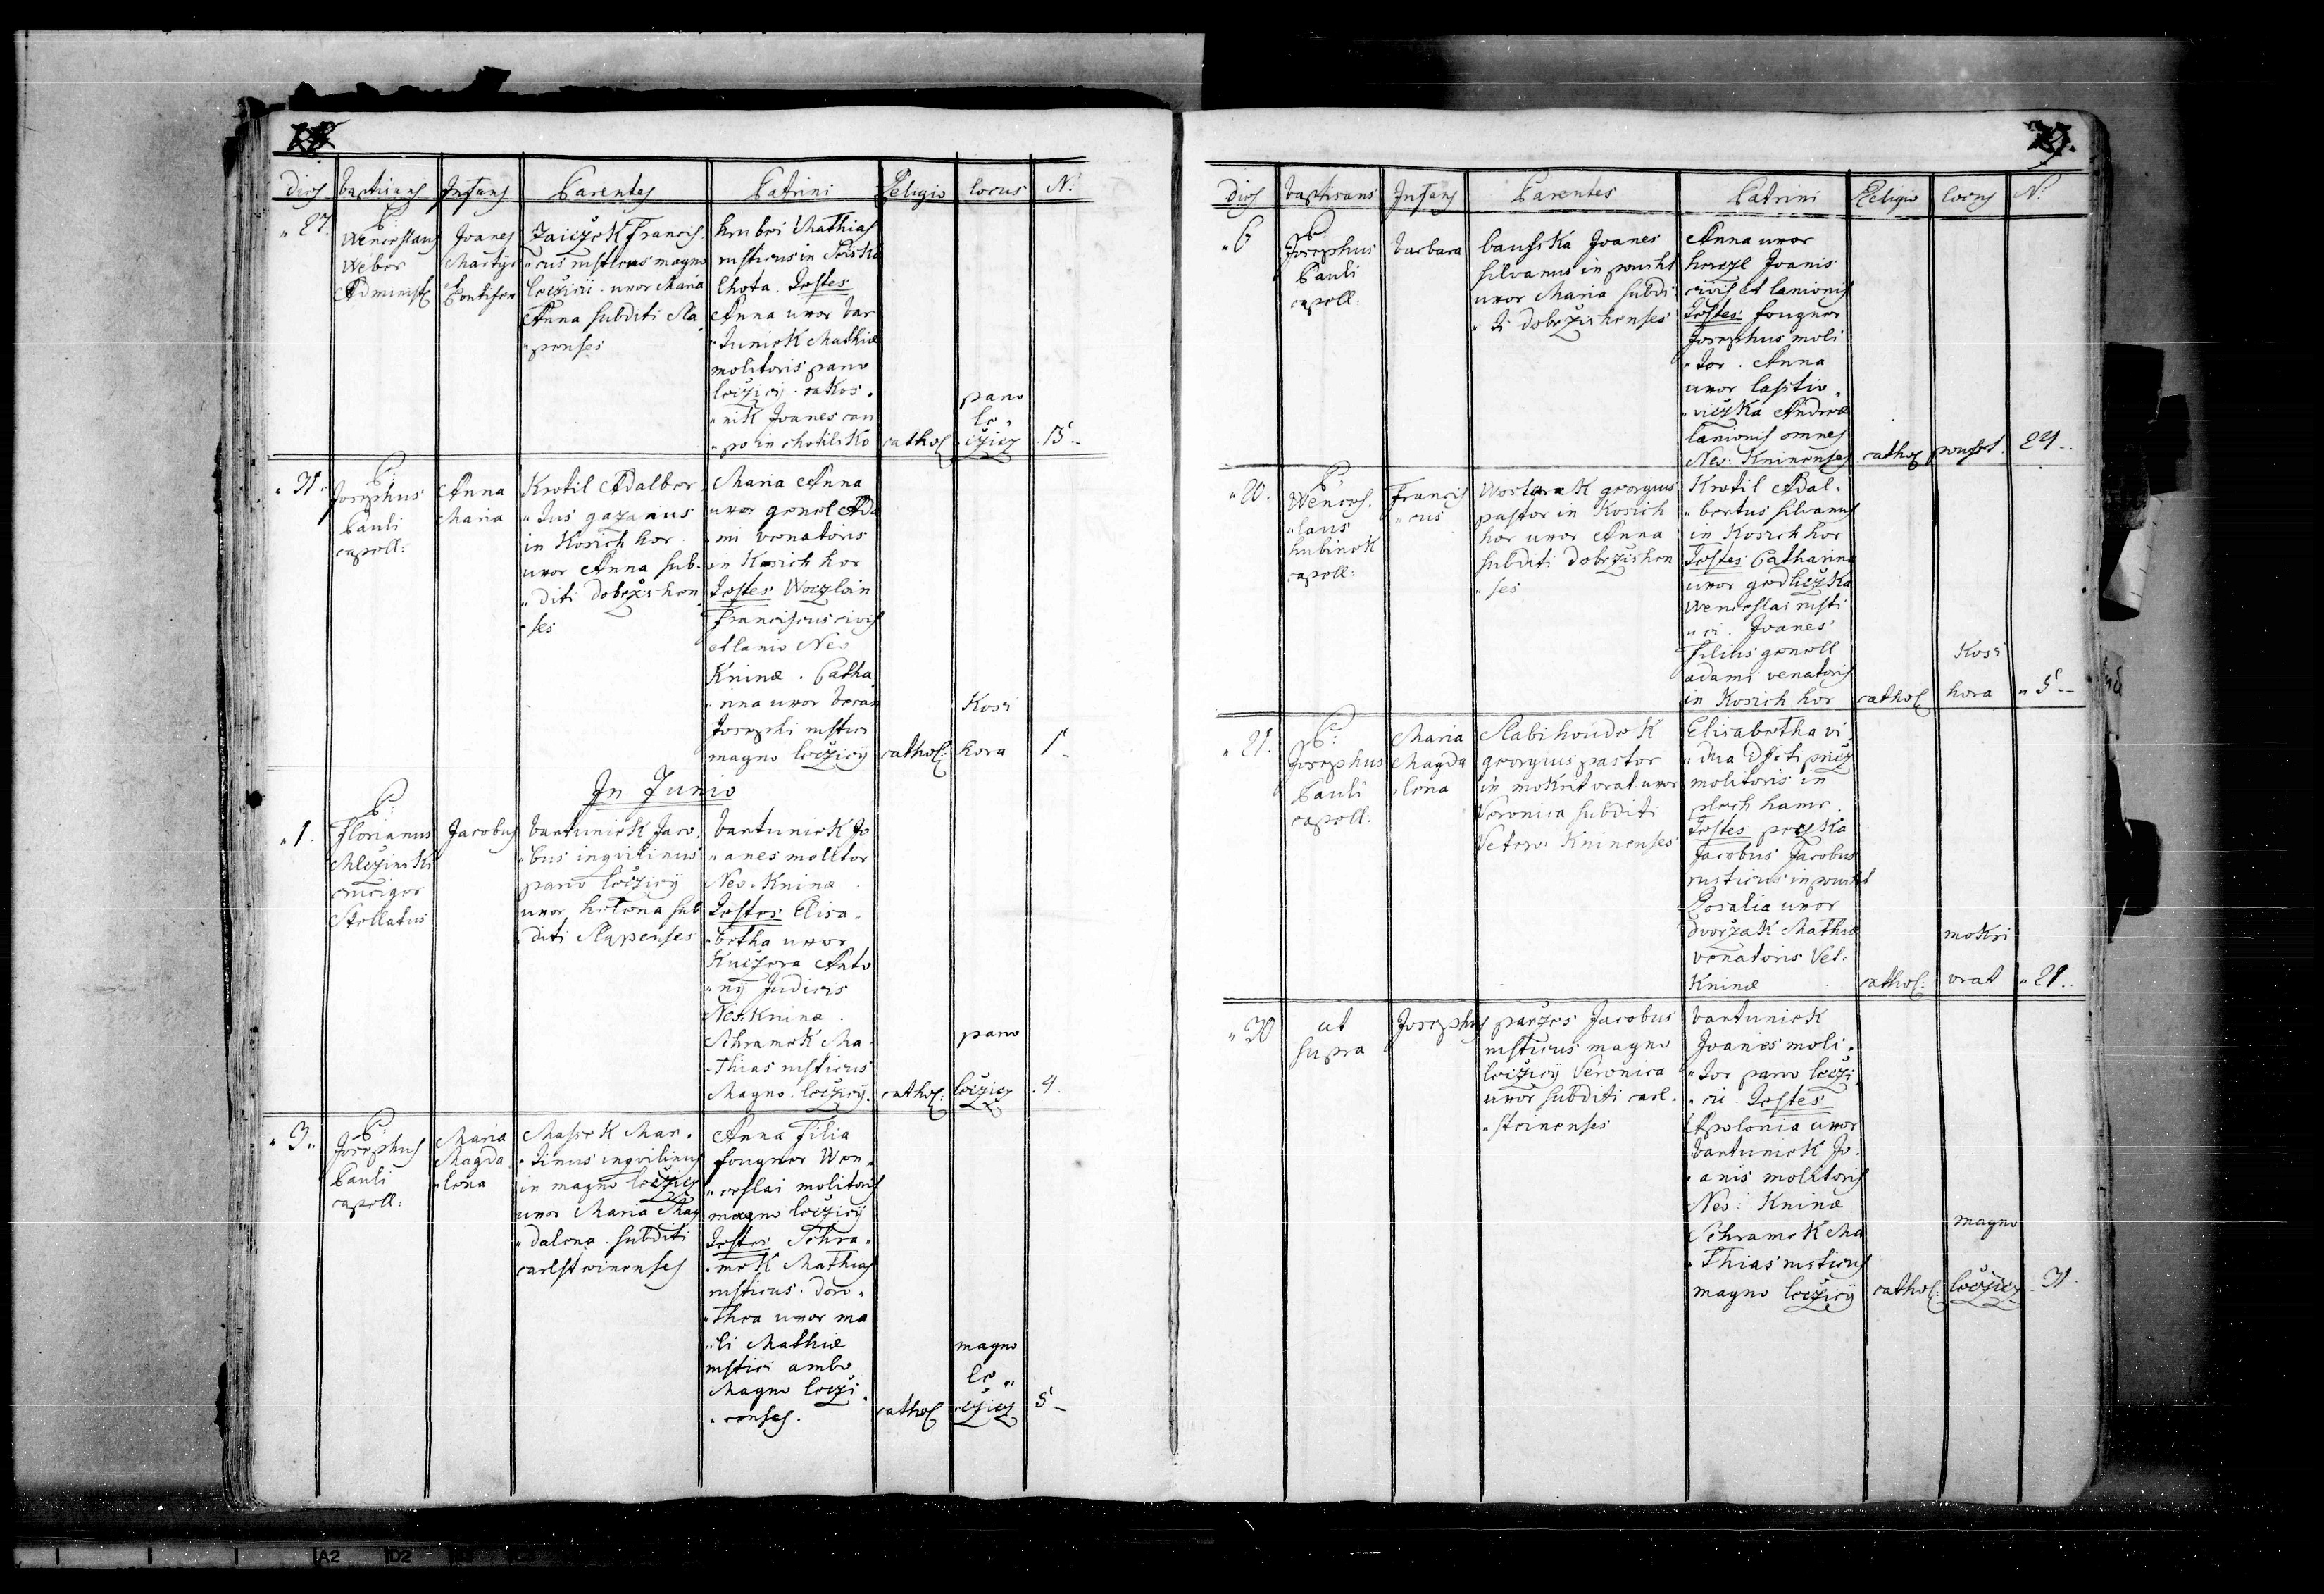 dies baptisans Infans Parentes Patrini Religio locus N:
„ 27.
P:
Wenceslaus
Weber
Administ:
Joanes
Martyr
Zaiczek Francis
„cus rusticus magno
lecžicii. uxor Maria
Anna subditi Sla„
„penses
hrubei Mathias
rusticus in
lhota. Testes
Anna uxor bar
„tuniek Mathiæ
molitoris parvo
lečzicy. rakos„
„nik Joanes cau
„po in chotilsko
cathol
parvo
le„
čzicz
13.
„ 31.
P:
Josephus
Pauli
capell:
Anna
Maria
Krotil Adalber„
„tus gazarius
in Kosich hor
uxor Anna sub„
„diti dobržishen
„ses
Maria Anna
uxor grendl Ada
„mi venatoris
in Kosich hor
Testes Woczloin
Franciscus civis
et lanio Neo
Kninæ. Catha„
„rina uxor beran
Josephi rustici
magno lečzicy
cathol:
Kosi
hora
1
In Junio
„ 1.
P:
Florianus
Mleczinski
cruciger
Stellatus
Jacobus
bartuniek Jaco„
„bus inqvilinus
parvo lečzicy
uxor, helena sub
diti Slapenses
bartuniek Jo
„anes molitor
Neo. Kninæ.
Testes Elisa„
„betha uxor
Kučzera Anto
„ny Judicis
Neo. Kninæ.
Schramek Ma„
„thias rusticus
Magno. lečzicy.
cathol:
parvo
lečzicz
4.
„ 3 „
P:
Josephus
Pauli
capell:
Maria
Magda
„lena
Maszek Mar„
„tinus inqvilinus
in magno lečzicz
uxor Maria Mag
„dalena. subditi
carlsteinenses
Anna Filia
fougner Wen„
„ceslai molitoris
magno lečzicy
Testes Schra„
„mek Mathias
rusticus. doro„
„thea uxor ma
„li Mathiæ
rustici ambo
Magno lečzi„
„censes.
cathol
magno
le„
„čzicz
5
79.
dies baptisans Infans Parentes Patrini Religio locus N:
„ 6
P:
Josephus
Pauli
capell:
barbara
bauska Joanes
silvanus in pouscht
uxor Maria subdi
„ti dobržishenses
Anna uxor
herczl Joanis
civis et lanionis
Testes fougner
Josephus moli
„tor. Anna
uxor lastio„
„viczka Andreæ
lanionis omnes
Neo: Kninenses
cathol
pouscht.
24.
„ 20.
P:
Wences„
„laus
hubinek
capell:
Francis
„cus
Wortarak georgius
pastor in Kosich
hor uxor Anna
subditi dobržishen
„ses
Krotil Adal„
„bertus silvanus
in Kosich hor
Testes Catharina
uxor gedliczka
Wenceslai rusti
„ci. Joanes
Filius grendl
adami venatoris
in Kosich hor
cathol
Kosi
hora
„ 5
„ 21.
P:
Josephus
Pauli
capell.
Maria
Magda
„lena
Slabihoudek
georgius pastor
in mokrivrat. uxor
Veronica subditi
Vetero: Kninenses
Elisabetha vi„
„dua
molitoris in
plech hamr.
Testes peczka
Jacobus Jacobus
rusticus in pouscht
Rosalia uxor
dvoržak Mathiæ
venatoris Vet:
Kninæ
cathol:
mokri
vrat
„ 21.
„ 30
ut
supra
Josephus
paržes Jacobus
rusticus magno
lečzicy Veronica
uxor subditi carl„
„steinenses
bartuniek
Joanes moli„
„tor parvo lečzi„
„cii. Testes
Apolonia uxor
bartuniek Jo„
„anis molitoris
Neo: Kninæ
Schramek Ma
„thias rusticus
magno lečzicy
cathol:
magno
lečzicz
31.